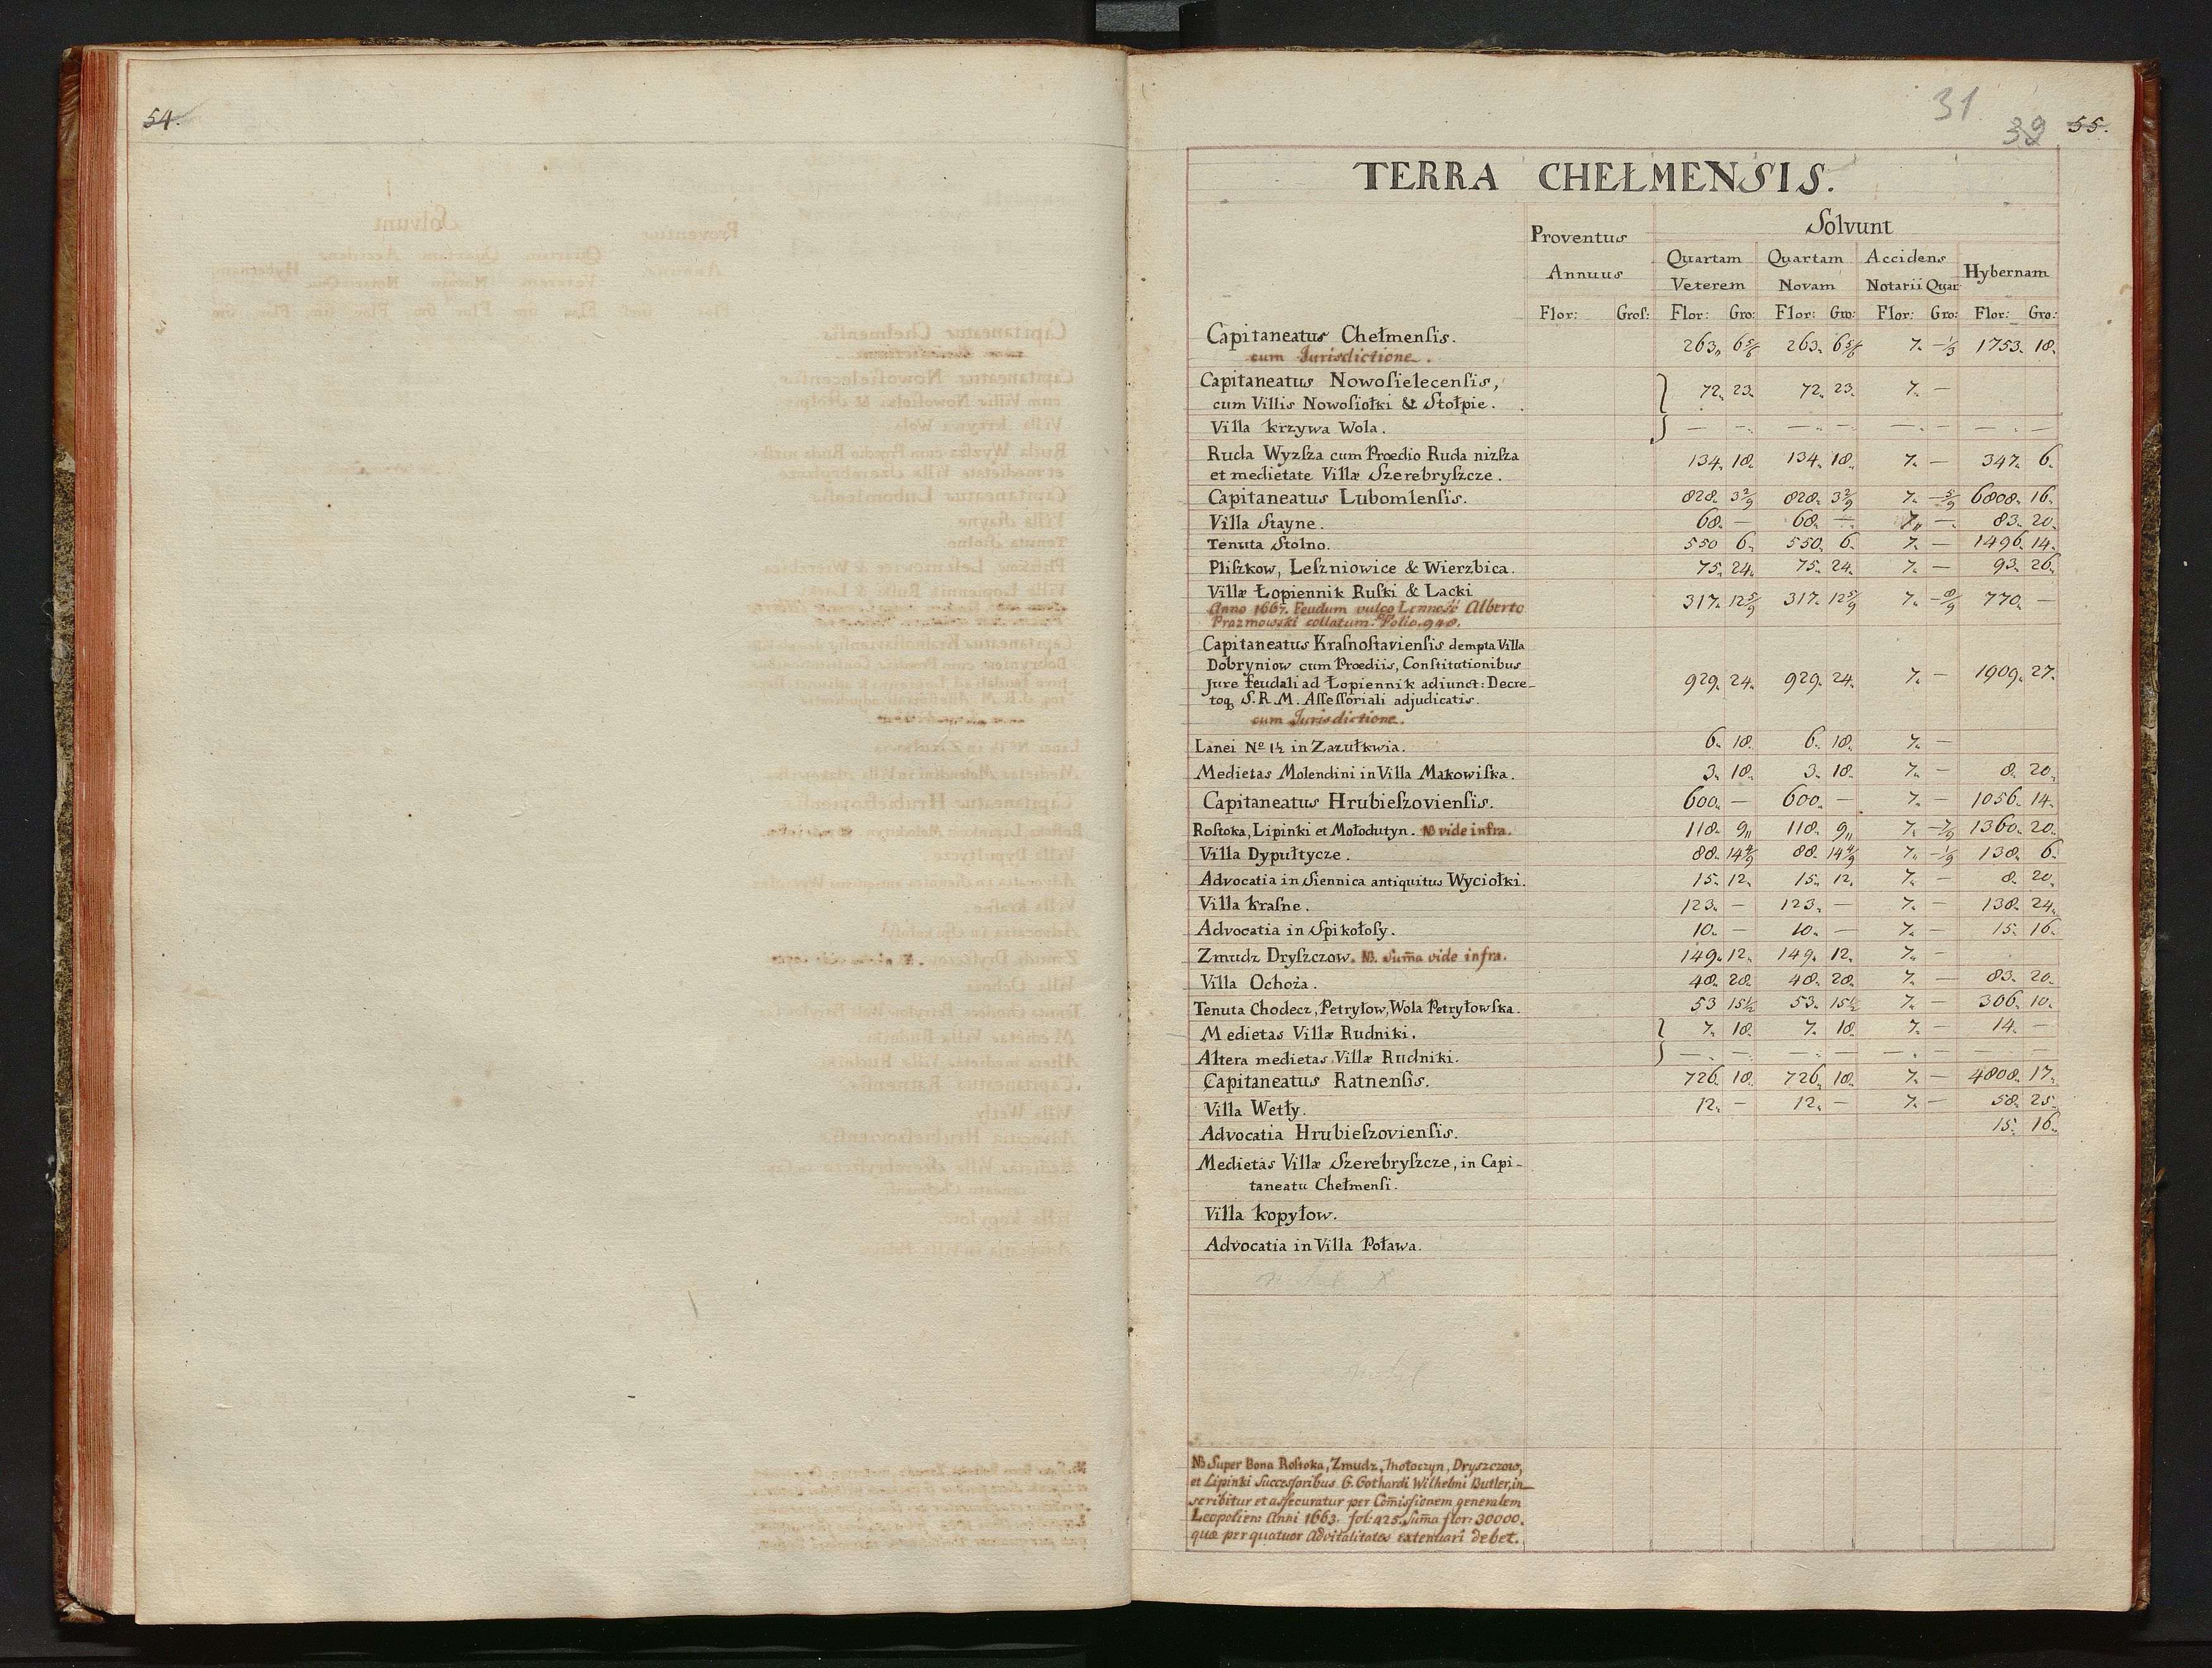 54.
31
39 55.
TERRA CHEŁMENSIS.
Proventus Annuus
Solvunt
Quartam Veterem Quartam Novam Accidens Notarii Quar Hybernam
Flor: Groſ: Flor: Gro: Flor: Gro: Flor: Gro: Flor: Gro:
Capitaneatus Chełmenſis. 263„ 6 5/6 263. 6 5/6 7. – 1/3 1753. 18.
cum Jurisdictione.
Capitaneatus Nowoſielecenſis, 72. 23. 72. 23. 7. –
cum Villis Nowoſiołki & Stołpie.
Villa krzywa Wola. — — — — — — — —
Ruda Wyzſza cum Prœdio Ruda nizſza 134. 18. 134. 18. 7. – 347. 6.
et medietate Villæ Szerebryſzcze.
Capitaneatus Lubomlenſis. 828. 3 2/9 828. 3 2/9 7. – 5/9 6808. 16.
Villa Stayne. 68. – 68. – 7„ – 83. 20.
Tenuta Stolno. 550 6. 550. 6. 7. – 1496. 14.
Pliſzkow, Leſzniowice & Wierzbica. 75. 24. 75. 24. 7. – 93. 26.
Villæ Łopiennik Ruſki & Lacki 317. 12 5/9 317. 12 5/9 7. – 8/9 770. –
Anno 1667. Feudum vulgo Lenność Alberto
Prazmowski collatum. Folio. 940.
Capitaneatus Kraſnoſtavienſis dempta Villa
Dobryniow cum Prœdiis, Conſtitutionibus
Jure feudali ad Łopiennik adiunct: Decre- 929. 24. 929. 24. 7. – 1909. 27.
toq; S. R. M. Aſſeſſoriali adjudicatis.
cum Jurisdictione.
Lanei Nº 1½ in Zazułkwia. 6. 18. 6. 18. 7. –
Medietas Molendini in Villa Makowiſka. 3. 18. 3. 18. 7. – 8. 20.
Capitaneatus Hrubieſzovienſis. 600. – 600. – 7. – 1056. 14.
Roſtoka, Lipinki et Mołodutyn. NB vide infra. 118. 9„ 118. 9„ 7. – 7/9 1360. 20.
Villa Dypułtycze. 88. 14 4/9 88. 14 4/9 7. – 1/9 138. 6.
Advocatia in Siennica antiquitus Wyciołki. 15. 12. 15. 12. 7. – 8. 20.
Villa kraſne. 123. – 123. – 7. – 138. 24.
Advocatia in Spikołoſy. 10. – 10. – 7. – 15. 16.
Zmudz Dryſzczow. NB. Sum̄a vide infra. 149. 12. 149. 12. 7. –
Villa Ochoża. 48. 28. 48. 28. 7. – 83. 20.
Tenuta Chodecz, Petryłow, Wola Petryłowſka. 53 15½ 53. 15½ 7. – 306. 10.
Medietas Villæ Rudniki. 7. 18. 7. 18. 7. – 14. –
Altera medietas Villæ Rudniki. — — — — — — — —
Capitaneatus Ratnenſis. 726. 18. 726. 18. 7. – 4808. 17.
Villa Wetły. 12. – 12. – 7. – 58. 25.
Advocatia Hrubieſzovienſis. 15. 16.
Medietas Villæ Szerebryſzcze, in Capi-
taneatu Chełmenſi.
Villa kopyłow.
Advocatia in Villa Poława.
NB Super Bona Roſtoka, Zmudz, Mołoczyn, Dryszczow,
et Lipinki Succesſoribus G. Gothardi Wilhelmi Butler, in-
scribitur et asſecuratur per Com̄isſionem generalem
Leopolien: Anni 1663. fol: 425. Sum̄a flor: 30000.
quæ per quatuor Advitalitates extenuari debet.